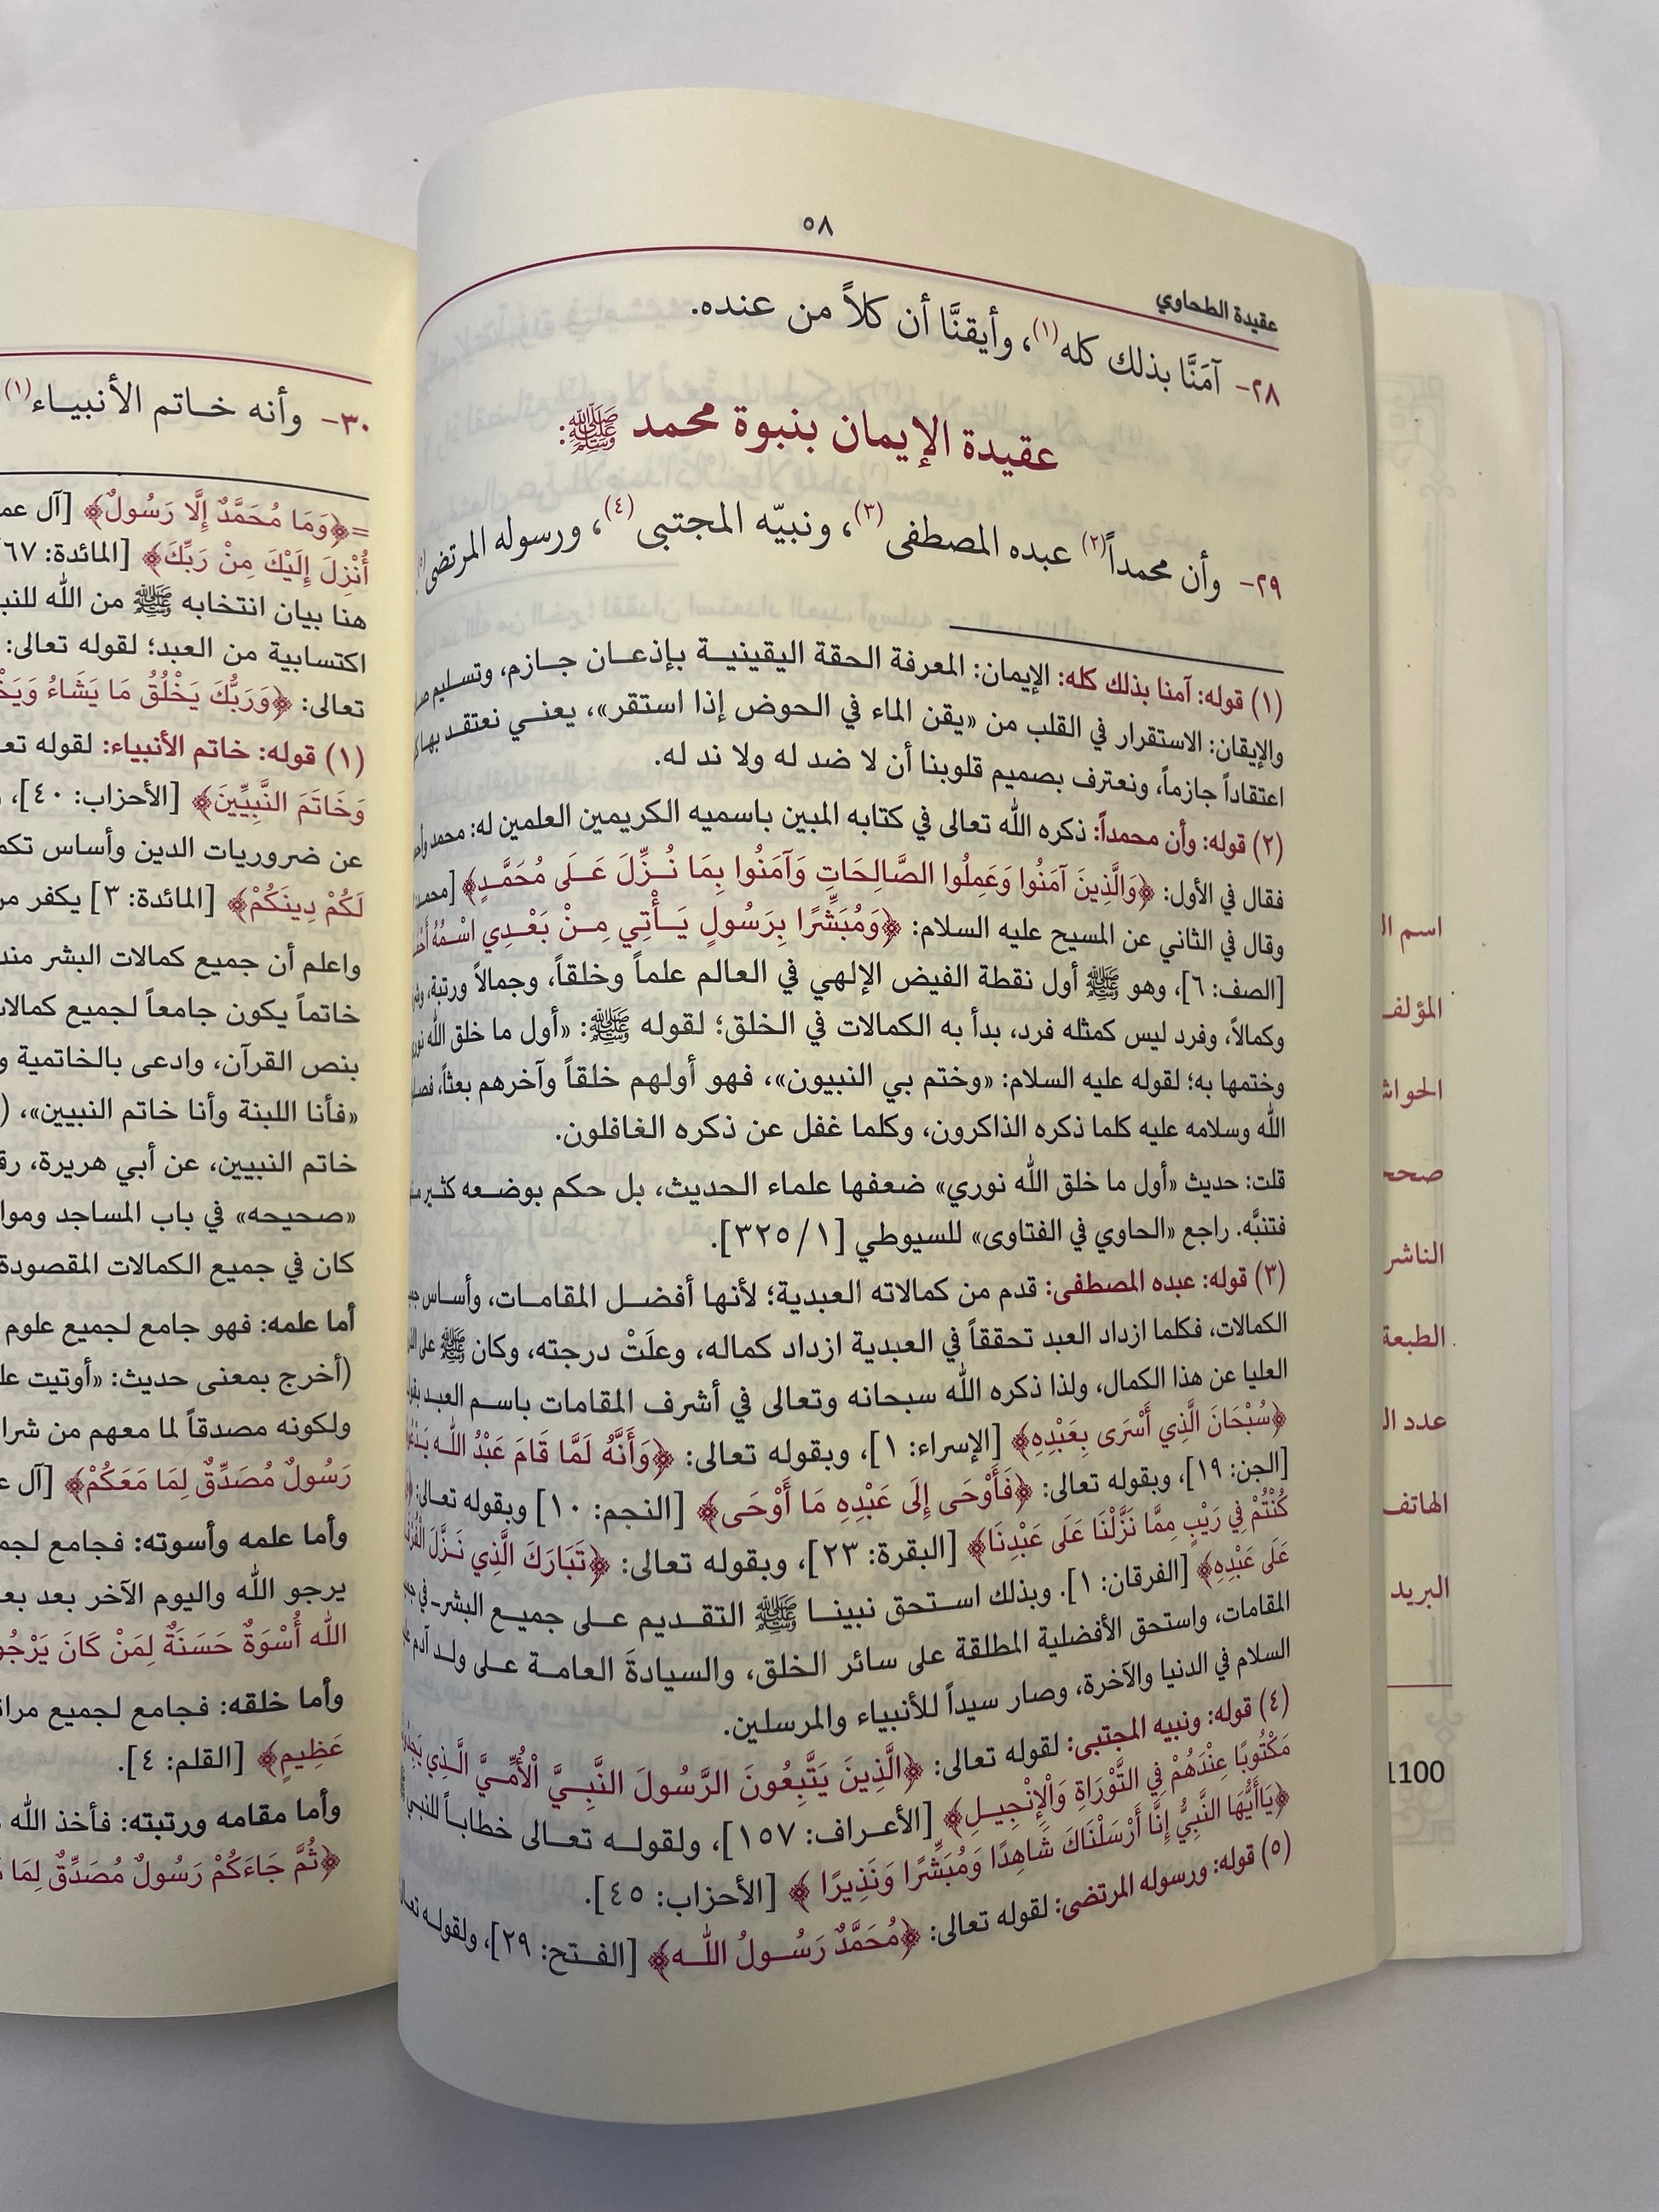 ٥٨
عقيدة الطحاوي
٢٨- آمَنَّا بذلك كله(١)، وأيقنَّا أن كلاً من عنده.
عقيدة الإيمان بنبوة محمد ﷺ:
٢٩- وأن محمداً(٢) عبده المصطفى(٣)، ونبيّه المجتبى(٤)، ورسوله المرتضى(٥)
(١) قوله: آمنا بذلك كله: الإيمان: المعرفة الحقة اليقينية بإذعان جازم، وتسليم
والإيقان: الاستقرار في القلب من «يقن الماء في الحوض إذا استقر»، يعني نعتقد
اعتقاداً جازماً، ونعترف بصميم قلوبنا أن لا ضد له ولا ند له.
(٢) قوله: وأن محمداً: ذكره الله تعالى في كتابه المبين باسميه الكريمين العلمين له: محمد
فقال في الأول: ﴿وَالَّذِينَ آمَنُوا وَعَمِلُوا الصَّالِحَاتِ وَآمَنُوا بِمَا نُزِّلَ عَلَى مُحَمَّدٍ﴾ [محمد:
وقال في الثاني عن المسيح عليه السلام: ﴿وَمُبَشِّرًا بِرَسُولٍ يَأْتِي مِنْ بَعْدِي اسْمُهُ
[الصف: ٦]، وهو ﷺ أول نقطة الفيض الإلهي في العالم علماً وخلقاً، وجمالاً ورتبة،
وكمالاً، وفرد ليس كمثله فرد، بدأ به الكمالات في الخلق؛ لقوله ﷺ: «أول ما خلق الله
وختمها به؛ لقوله عليه السلام: «وختم بي النبيون»، فهو أولهم خلقاً وآخرهم بعثاً،
الله وسلامه عليه كلما ذكره الذاكرون، وكلما غفل عن ذكره الغافلون.
قلت: حديث «أول ما خلق الله نوري» ضعفها علماء الحديث، بل حكم بوضعه كثير
فتنبَّه. راجع «الحاوي في الفتاوى» للسيوطي [١/ ٣٢٥].
(٣) قوله: عبده المصطفى: قدم من كمالاته العبدية؛ لأنها أفضل المقامات، وأساس
الكمالات، فكلما ازداد العبد تحققاً في العبدية ازداد كماله، وعلَتْ درجته، وكان ﷺ على
العليا عن هذا الكمال، ولذا ذكره الله سبحانه وتعالى في أشرف المقامات باسم العبد
﴿سُبْحَانَ الَّذِي أَسْرَى بِعَبْدِهِ﴾ [الإسراء: ١]، وبقوله تعالى: ﴿وَأَنَّهُ لَمَّا قَامَ عَبْدُ الله
[الجن: ١٩]، وبقوله تعالى: ﴿فَأَوْحَى إِلَى عَبْدِهِ مَا أَوْحَى﴾ [النجم: ١٠] وبقوله تعالى:
كُنْتُمْ فِي رَيْبٍ مِمَّا نَزَّلْنَا عَلَى عَبْدِنَا﴾ [البقرة: ٢٣]، وبقوله تعالى: ﴿تَبَارَكَ الَّذِي نَزَّلَ
عَلَى عَبْدِهِ﴾ [الفرقان: ١]. وبذلك استحق نبينا ﷺ التقديم على جميع البشر في
المقامات، واستحق الأفضلية المطلقة على سائر الخلق، والسيادةَ العامة على ولد آدم
السلام في الدنيا والآخرة، وصار سيداً للأنبياء والمرسلين.
(٤) قوله: ونبيه المجتبى: لقوله تعالى: ﴿الَّذِينَ يَتَّبِعُونَ الرَّسُولَ النَّبِيَّ الْأُمِّيَّ الَّذِي
مَكْتُوبًا عِنْدَهُمْ فِي التَّوْرَاةِ وَالْإِنْجِيلِ﴾ [الأعراف: ١٥٧]، ولقوله تعالى خطاباً للنبي
﴿يَاأَيُّهَا النَّبِيُّ إِنَّا أَرْسَلْنَاكَ شَاهِدًا وَمُبَشِّرًا وَنَذِيرًا ﴾ [الأحزاب: ٤٥].
(٥) قوله: ورسوله المرتضى: لقوله تعالى: ﴿مُحَمَّدٌ رَسُولُ الله﴾ [الفتح: ٢٩]، ولقوله
٣٠- وأنه خاتم الأنبياء(١)
=﴿وَمَا مُحَمَّدٌ إِلَّا رَسُولٌ﴾ [آل
أُنْزِلَ إِلَيْكَ مِنْ رَبِّكَ﴾ [المائدة: ٦٧
هنا بيان انتخابه ﷺ من الله
اكتسابية من العبد؛ لقوله تعالى:
تعالى: ﴿وَرَبُّكَ يَخْلُقُ مَا يَشَاءُ
(١) قوله: خاتم الأنبياء: لقوله
وَخَاتَمَ النَّبِيِّينَ﴾ [الأحزاب: ٤٠]،
عن ضروريات الدين وأساس
لَكُمْ دِينَكُمْ﴾ [المائدة: ٣] يكفر
واعلم أن جميع كمالات البشر
خاتماً يكون جامعاً لجميع
بنص القرآن، وادعى بالخاتمية
«فأنا اللبنة وأنا خاتم النبيين»،
خاتم النبيين، عن أبي هريرة،
«صحيحه» في باب المساجد
كان في جميع الكمالات المقصودة
أما علمه: فهو جامع لجميع علوم
(أخرج بمعنى حديث: «أوتيت
ولكونه مصدقاً لما معهم من
رَسُولٌ مُصَدِّقٌ لِمَا مَعَكُمْ﴾ [آل
وأما علمه وأسوته: فجامع
يرجو الله واليوم الآخر بعد
الله أُسْوَةٌ حَسَنَةٌ لِمَنْ كَانَ
وأما خلقه: فجامع لجميع
عَظِيمٍ﴾ [القلم: ٤].
وأما مقامه ورتبته: فأخذ الله
﴿ثُمَّ جَاءَكُمْ رَسُولٌ مُصَدِّقٌ لِمَا
اسم
المؤلف
الناشر
الطبعة
عدد
الهاتف
البريد
1100